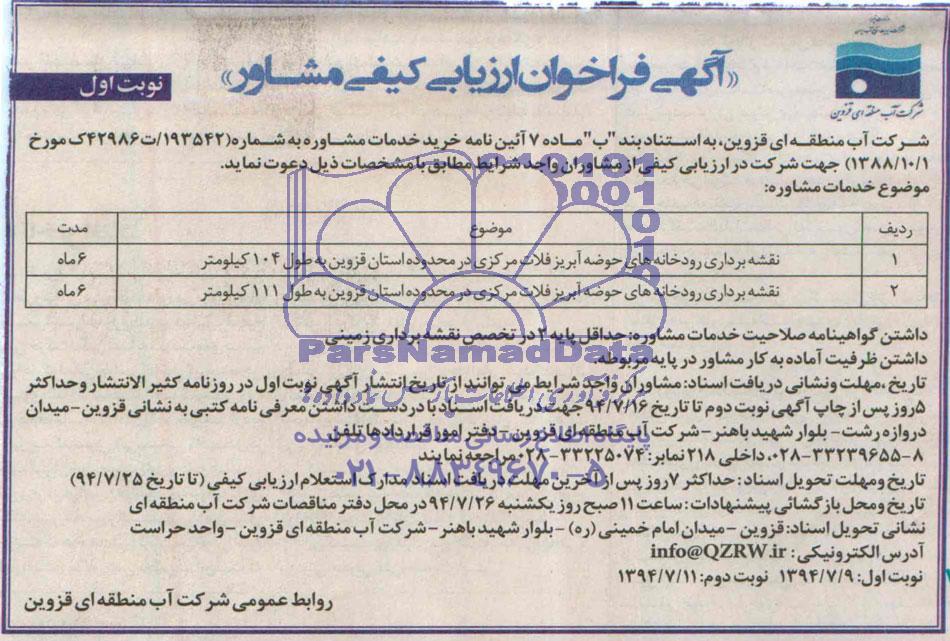 شرکت آب منطقه ای قزوین
«آگهی فراخوان ارزیابی کیفی مشاور»
نوبت اول
شرکت آب منطقه ای قزوین، به استناد بند "ب" ماده ۷ آئین نامه خرید خدمات مشاوره به شماره (۱۹۳۵۴۲/ت۴۲۹۸۶ک مورخ
۱۳۸۸/۱۰/۱) جهت شرکت در ارزیابی کیفی از مشاوران واجد شرایط مطابق با مشخصات ذیل دعوت نماید.
موضوع خدمات مشاوره:
ردیف موضوع مدت
۱ نقشه برداری رودخانه های حوضه آبریز فلات مرکزی در محدوده استان قزوین به طول ۱۰۴ کیلومتر ۶ماه
۲ نقشه برداری رودخانه های حوضه آبریز فلات مرکزی در محدوده استان قزوین به طول ۱۱۱ کیلومتر ۶ماه
داشتن گواهینامه صلاحیت خدمات مشاوره: حداقل پایه ۲ در تخصص نقشه برداری زمینی
داشتن ظرفیت آماده به کار مشاور در پایه مربوطه.
تاریخ، مهلت ونشانی دریافت اسناد: مشاوران واجد شرایط می توانند از تاریخ انتشار آگهی نوبت اول در روزنامه کثیر الانتشار وحداکثر
۵روز پس از چاپ آگهی نوبت دوم تا تاریخ ۹۴/۷/۱۶ جهت دریافت اسناد با در دست داشتن معرفی نامه کتبی به نشانی قزوین-میدان
دروازه رشت- بلوار شهید باهنر-شرکت آب منطقه ای قزوین-دفتر امور قراردادها تلفن
۸-۳۳۲۳۹۶۵۵-۰۲۸، داخلی ۲۱۸ نمابر: ۳۳۲۲۵۰۷۴-۰۲۸ مراجعه نمایند
تاریخ ومهلت تحویل اسناد: حداکثر ۷روز پس از آخرین مهلت دریافت اسناد مدارک استعلام ارزیابی کیفی (تا تاریخ ۹۴/۷/۲۵)
تاریخ ومحل بازگشائی پیشنهادات: ساعت ۱۱ صبح روز یکشنبه ۹۴/۷/۲۶ در محل دفتر مناقصات شرکت آب منطقه ای
نشانی تحویل اسناد: قزوین -میدان امام خمینی (ره)-بلوار شهید باهنر-شرکت آب منطقه ای قزوین -واحد حراست
آدرس الکترونیکی: info@QZRW.ir
نوبت اول: ۱۳۹۴/۷/۹ نوبت دوم: ۱۳۹۴/۷/۱۱
روابط عمومی شرکت آب منطقه ای قزوین
ParsNamadData
پایگاه اطلاع رسانی مناقصه و مزایده
۰۲۱-۸۸۳۴۹۶۷۰-۵